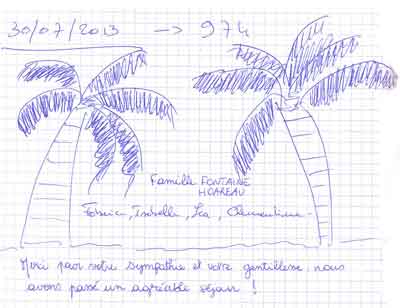 30/07/2013 → 974
Famille FONTAINE
HOAREAU
Fabrice, Isabelle, Léa, Clémentine.
Merci pour votre sympathie et votre gentillesse, nous
avons passé un agréable séjour !